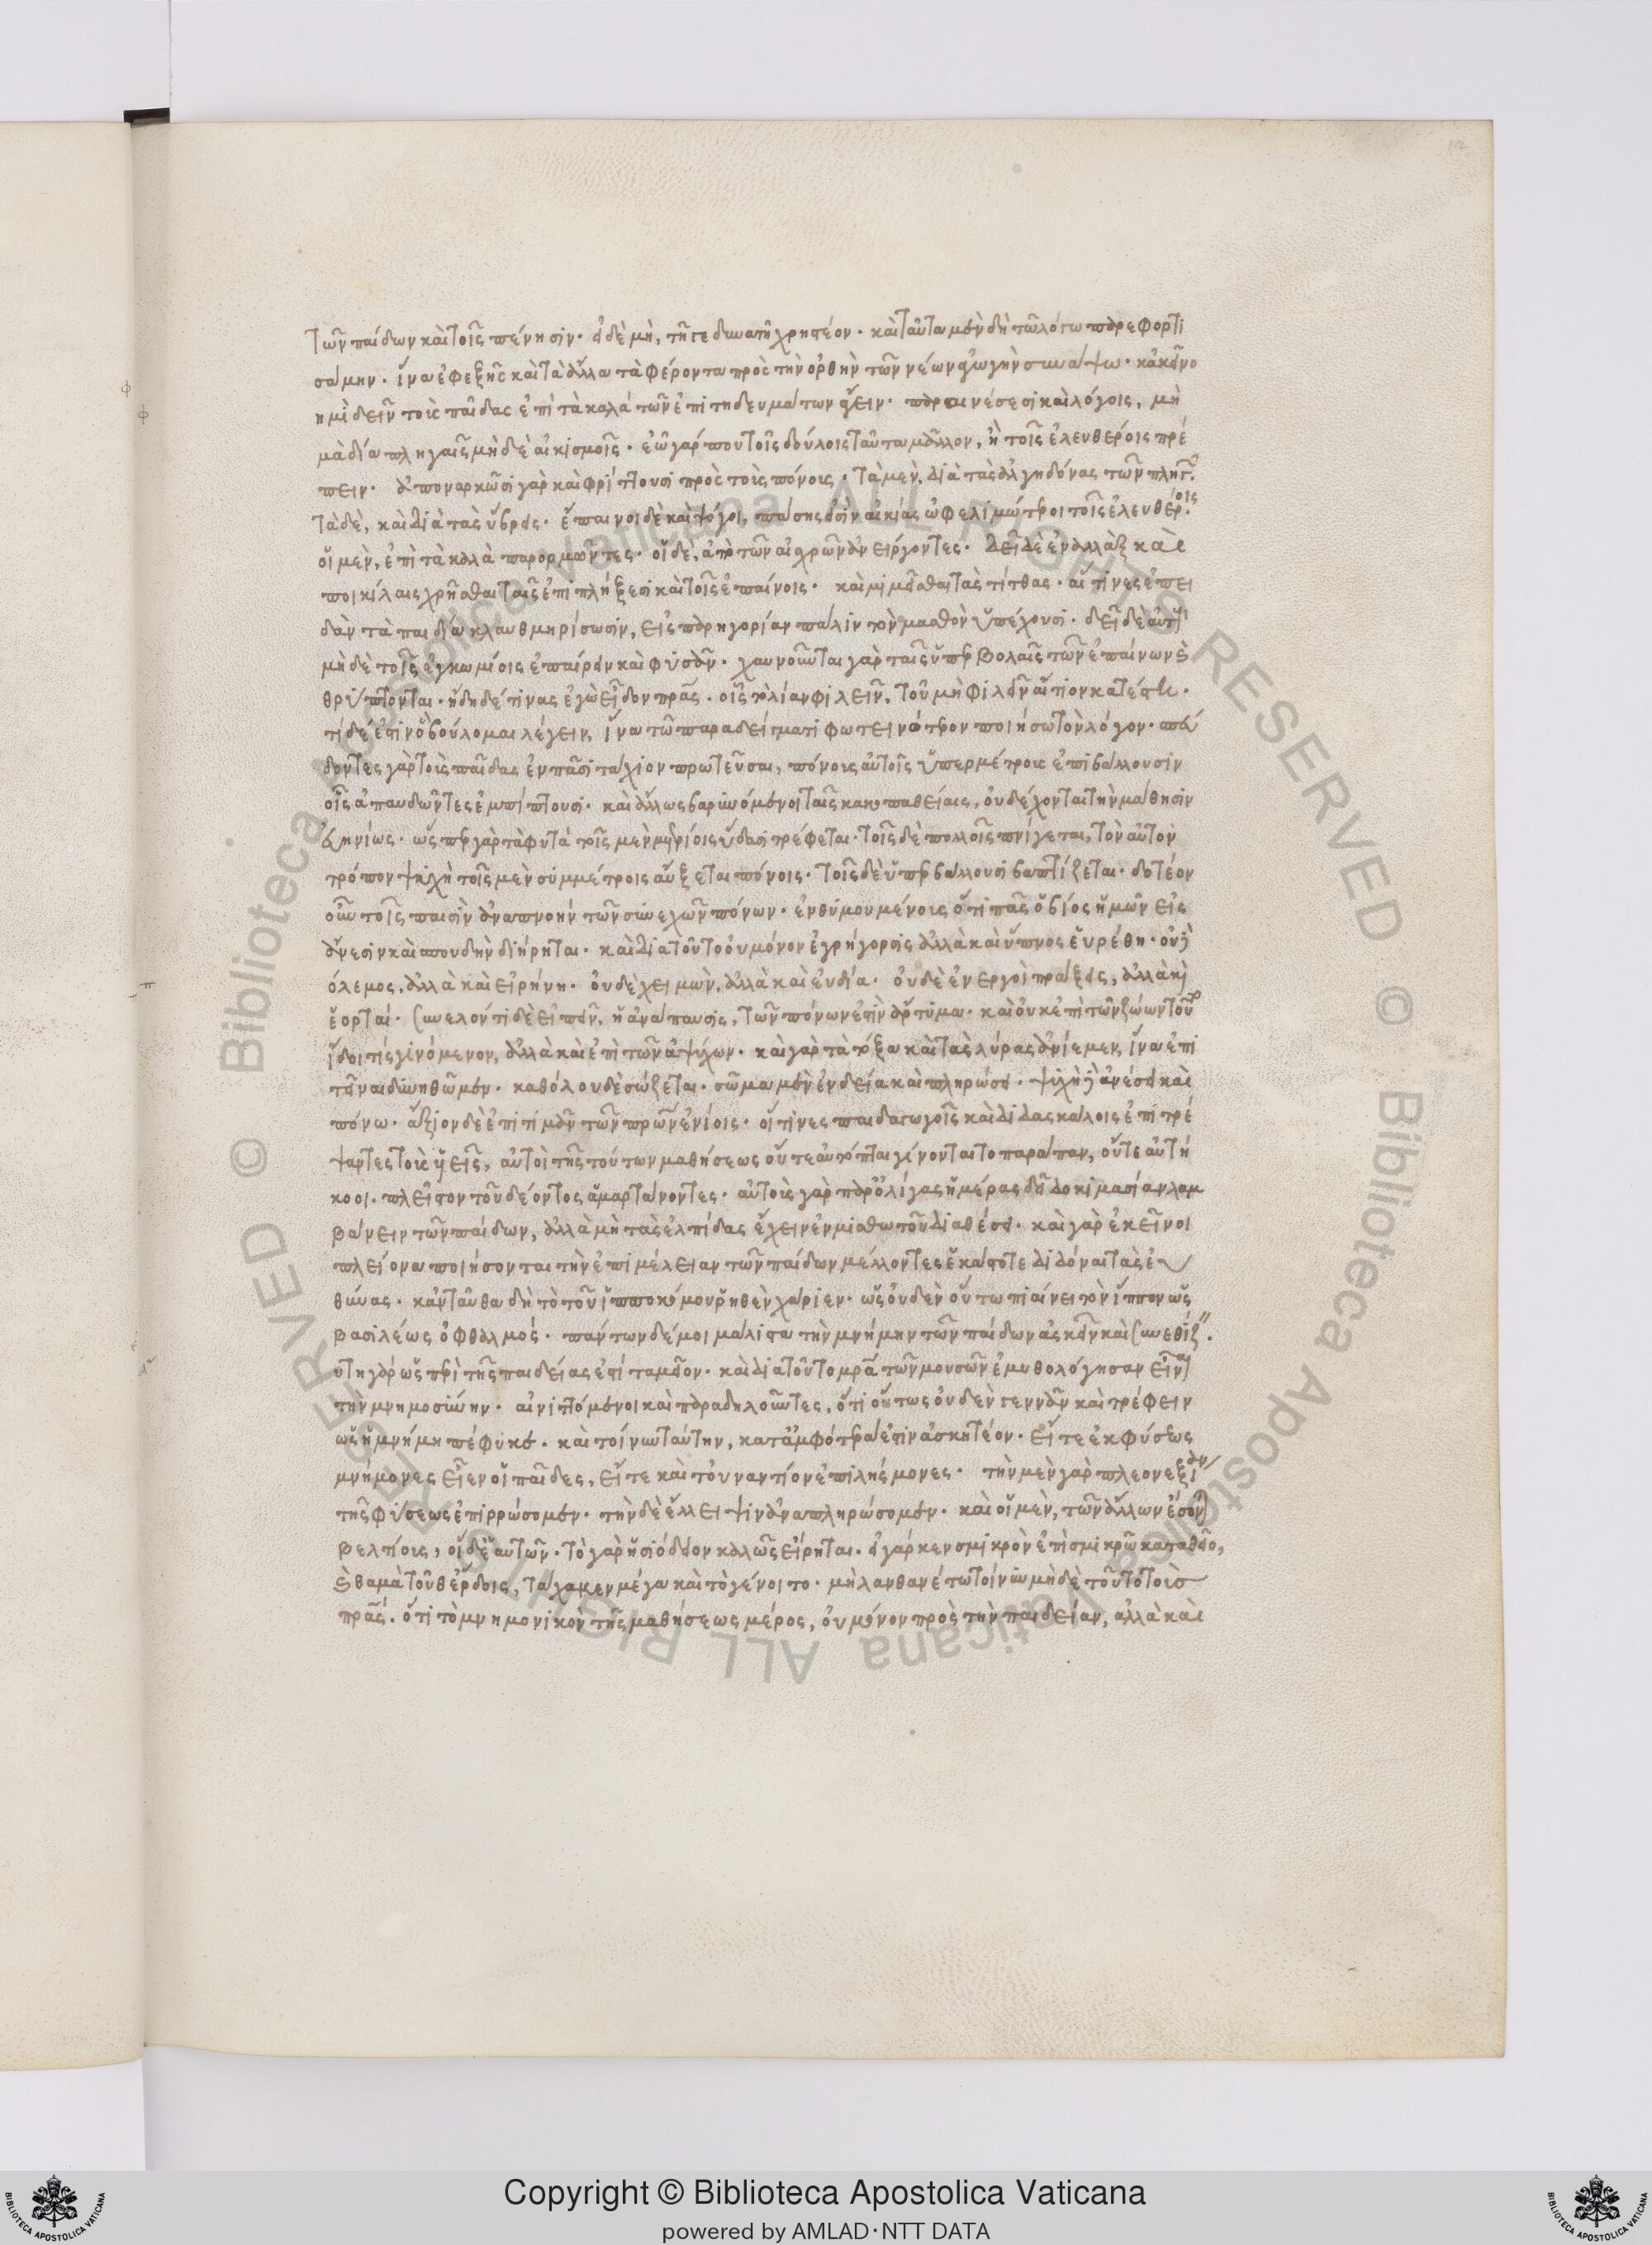 τῶν παίδων καὶ τοῖς πένησιν· εἰ δὲ μὴ, τῆ γε δυνατῆ χρηστέον· καὶ ταῦτα μὲν δὴ τῶ λόγω παρεφορτι
σάμην· ἵνα ἐφεξῆς καὶ τὰ ἄλλα τὰ φέροντα πρὸς τὴν ὀρθὴν τῶν νέων ἀγωγὴν συνάψω· κἀκεῖνο
φημὶ δεῖν τοὺς παῖδας ἐπὶ τὰ καλὰ τῶν ἐπιτηδευμάτων ἄγειν· παραινέσεσι καὶ λόγοις, μὴ
μὰ δία πληγαῖς μὴ δὲ αἰκισμοῖς· ἐῶ γάρ που τοῖς δούλοις ταῦτα μᾶλλον, ἢ τοῖς ἐλευθέροις πρέ
πειν· ἀποναρκῶσι γὰρ καὶ φρίττουσι πρὸς τοὺς πόνους· τὰ μὲν, διὰ τὰς ἀλγηδόνας τῶν πληγῶν.
τὰ δὲ, καὶ διὰ τὰς ὕβρεις· ἔπαινοι δὲ καὶ ψόγοι, πάσης εἰσὶν αἰκίας ὠφελιμώτεροι τοῖς ἐλευθέροις.
οἱ μὲν, ἐπὶ τὰ καλὰ παρορμῶντες· οἱ δὲ, ἀπὸ τῶν αἰσχρῶν ἀνείργοντες· δεῖ δὲ ἐναλλὰξ καὶ
ποικίλαις χρῆσθαι ταῖς ἐπιπλήξεσι καὶ τοῖς ἐπαίνοις· καὶ μιμεῖσθαι τὰς τίτθας· αἵτινες ἐπει
δὰν τὰ παιδία κλαυθμηρίσωσιν, εἰς παρηγορίαν πάλιν τὸν μασθὸν ὑπέχουσι· δεῖ δὲ αὐτοὺς
μὴ δὲ τοῖς ἐγκωμίοις ἐπαίρειν καὶ φυσᾶν· χαυνοῦνται γὰρ ταῖς ὑπερβολαῖς τῶν ἐπαίνων καὶ
θρύπτονται· ἤδη δέ τινας ἐγὼ εἶδον πατέρας· οἷς τὸ λίαν φιλεῖν, τοῦ μὴ φιλεῖν αἴτιον κατέστη·
τί δέ ἐστιν ὃ βούλομαι λέγειν, ἵνα τῶ παραδείγματι φωτεινότερον ποιήσω τὸν λόγον· σπεύ
δοντες γὰρ τοὺς παῖδας ἐν πᾶσι τάχιον πρωτεῦσαι, πόνους αὐτοῖς ὑπερμέτρους ἐπιβάλλουσιν
οἷς ἀπαυδῶντες ἐμπίπτουσι· καὶ ἄλλως βαρυνόμενοι ταῖς κακοπαθείαις, οὐ δέχονται τὴν μάθησιν
εὐηνίως· ὥσπερ γὰρ τὰ φυτὰ τοῖς μὲν μετρίοις ὕδασι τρέφεται· τοῖς δὲ πολλοῖς πνίγεται, τὸν αὐτὸν
τρόπον ψυχὴ τοῖς μὲν συμμέτροις αὔξεται πόνοις· τοῖς δὲ ὑπερβάλλουσι βαπτίζεται· δοτέον
οὖν τοῖς παισὶν ἀναπνοὴν τῶν συνεχῶν πόνων· ἐνθυμουμένους ὅτι πᾶς ὁ βίος ἡμῶν εἰς
ἄνεσιν καὶ σπουδὴν διήρηται· καὶ διὰ τοῦτο οὐ μόνον ἐγρήγορσις ἀλλὰ καὶ ὕπνος εὑρέθη· οὐ δὲ
πόλεμος, ἀλλὰ καὶ εἰρήνη· οὐδὲ χειμὼν, ἀλλὰ καὶ εὐδία· οὐδὲ ἐνεργοὶ πράξεις, ἀλλὰ καὶ
ἑορταί· συνελόντι δὲ εἰπεῖν, ἡ ἀνάπαυσις, τῶν πόνων ἐστὶν ἄρτυμα· καὶ οὐκ ἐπὶ τῶν ζώων τοῦτο
ἴδοι τις γινόμενον, ἀλλὰ καὶ ἐπὶ τῶν ἀψύχων· καὶ γὰρ τὰ τόξα καὶ τὰς λύρας ἀνίεμεν, ἵνα ἐπι
τεῖναι δυνηθῶμεν· καθόλου δὲ σώζεται· σῶμα μὲν ἐνδεία καὶ πληρώσει· ψυχὴ δὲ ἀνέσει καὶ
πόνω· ἄξιον δὲ ἐπιτιμᾶν τῶν πατέρων ἐνίοις· οἵτινες παιδαγωγοῖς καὶ διδασκάλοις ἐπιτρέ
ψαντες τοὺς υἱεῖς, αὐτοὶ τῆς τούτων μαθήσεως οὔτε αὐτόπται γίνονται τοπαράπαν, οὔτε αὐτή
κοοι· πλεῖστον τοῦ δέοντος ἁμαρτάνοντες· αὐτοὺς γὰρ παρ' ὀλίγας ἡμέρας δεῖ δοκιμασίαν λαμ
βάνειν τῶν παίδων, ἀλλὰ μὴ τὰς ἐλπίδας ἔχειν ἐν μισθωτοῦ διαθέσει· καὶ γὰρ ἐκεῖνοι
πλείονα ποιήσονται τὴν ἐπιμέλειαν τῶν παίδων μέλλοντες ἑκάστοτε διδόναι τὰς εὐ
θύνας· κἀνταῦθα δὴ τὸ τοῦ ἱπποκόμου ῥηθὲν χαρίεν· ὡς οὐδὲν οὕτω πιαίνει τὸν ἵππον ὡς
βασιλέως ὀφθαλμός· πάντων δέ μοι μάλιστα τὴν μνήμην τῶν παίδων ἀσκεῖν καὶ συνεθίζειν.
αὕτη γὰρ ὥσπερ τῆς παιδείας ἐστὶ ταμεῖον· καὶ διὰ τοῦτο μητέρα τῶν μουσῶν ἐμυθολόγησαν εἶναι
τὴν μνημοσύνην· αἰνιττόμενοι καὶ παραδηλοῦντες, ὅτι οὕτως οὐδὲν γεννᾶν καὶ τρέφειν
ὡς ἡ μνήμη πέφυκε· καὶ τοίνυν ταύτην, κατ' ἀμφότερά ἐστιν ἀσκητέον· εἴτε ἐκ φύσεως
μνήμονες εἶεν οἱ παῖδες, εἴτε καὶ τοὐναντίον ἐπιλήσμονες· τὴν μὲν γὰρ πλεονεξίαν
τῆς φύσεως ἐπιρρώσομεν· τὴν δὲ ἔλλειψιν ἀναπληρώσομεν· καὶ οἱ μὲν, τῶν ἄλλων ἔσονται
βελτίους, οἱ δὲ ἑαυτῶν· τὸ γὰρ ἡσιόδειον καλῶς εἴρηται· εἰ γάρ κεν σμικρὸν ἐπὶ σμικρῶ καταθεῖο,
καὶ θαμὰ τοῦθ' ἕρδοις, τάχα κεν μέγα καὶ τὸ γένοιτο· μὴ λανθανέτω τοίνυν μὴ δὲ τοῦτο τοὺς
πατέρας· ὅτι τὸ μνημονικὸν τῆς μαθήσεως μέρος, οὐ μόνον πρὸς τὴν παιδείαν, ἀλλὰ καὶ
© Biblioteca Apostolica Vaticana ALL RIGHTS RESERVED © Biblioteca Apostolica Vaticana ALL RIGHTS RESERVED
Copyright © Biblioteca Apostolica Vaticana
powered by AMLAD·NTT DATA